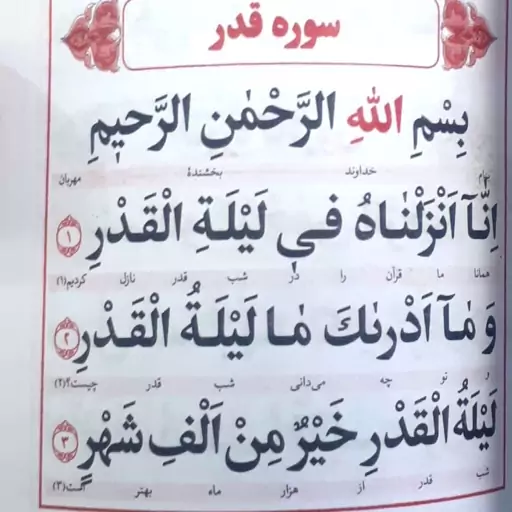 سوره قدر
بِسْمِ اللهِ الرَّحْمٰنِ الرَّحیمِ
بنام خداوند بخشندهٔ مهربان
اِنَّآ اَنْزَلْنٰاهُ فی لَیْلَةِ الْقَدْرِ ۱
همانا ما قرآن را در شب قدر نازل کردیم(۱)
وَ مٰآ اَدْرٰىكَ مٰا لَیْلَةُ الْقَدْرِ ۲
و تو چه می‌دانی شب قدر چیست؟(۲)
لَیْلَةُ الْقَدْرِ خَیْرٌ مِنْ اَلْفِ شَهْرٍ ۳
شب قدر از هزار ماه بهتر است(۳)